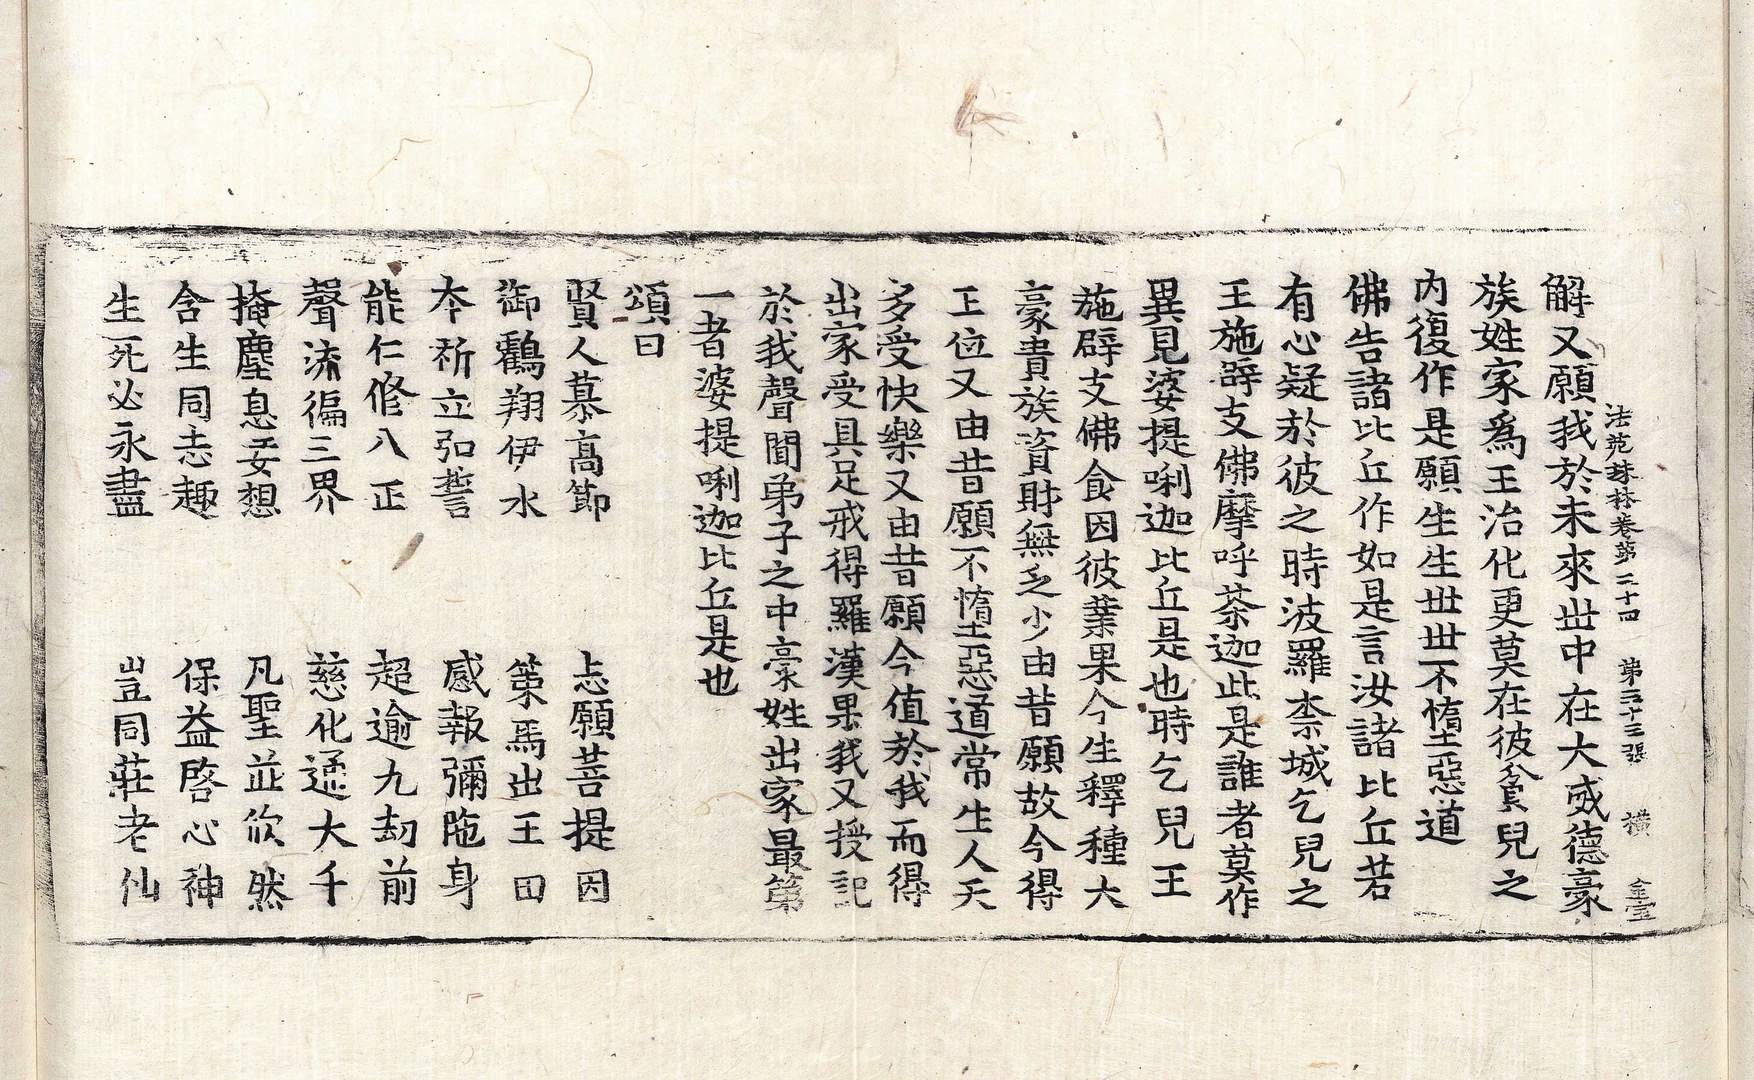 法苑珠林卷第三十四 第三十三張 橫
解又願我於未來世中在大威德豪
族姓家爲王治化更莫在彼貧兒之
内復作是願生生世世不墮惡道
佛告諸比丘作如是言汝諸比丘若
有心疑於彼之時波羅柰城乞兒之
王施辟支佛摩呼荼迦此是誰者莫作
異見婆提唎迦比丘是也時乞兒王
施辟支佛食因彼業果今生釋種大
豪貴族資財無乏少由昔願故今得
王位又由昔願不墮惡道常生人天
多受快樂又由昔願今值於我而得
出家受具足戒得羅漢果我又授記
於我聲聞弟子之中豪姓出家最第
一者婆提唎迦比丘是也
頌曰
賢人慕高節 志願菩提因
御鸖翔伊水 策馬出王田
夲祈立弘誓 感報彌陁身
能仁修八正 超逾九刧前
聲流徧三界 慈化遍大千
掩塵息妄想 凡聖並欣然
含生同志趣 保益啓心神
生死必永盡 豈同莊老仙